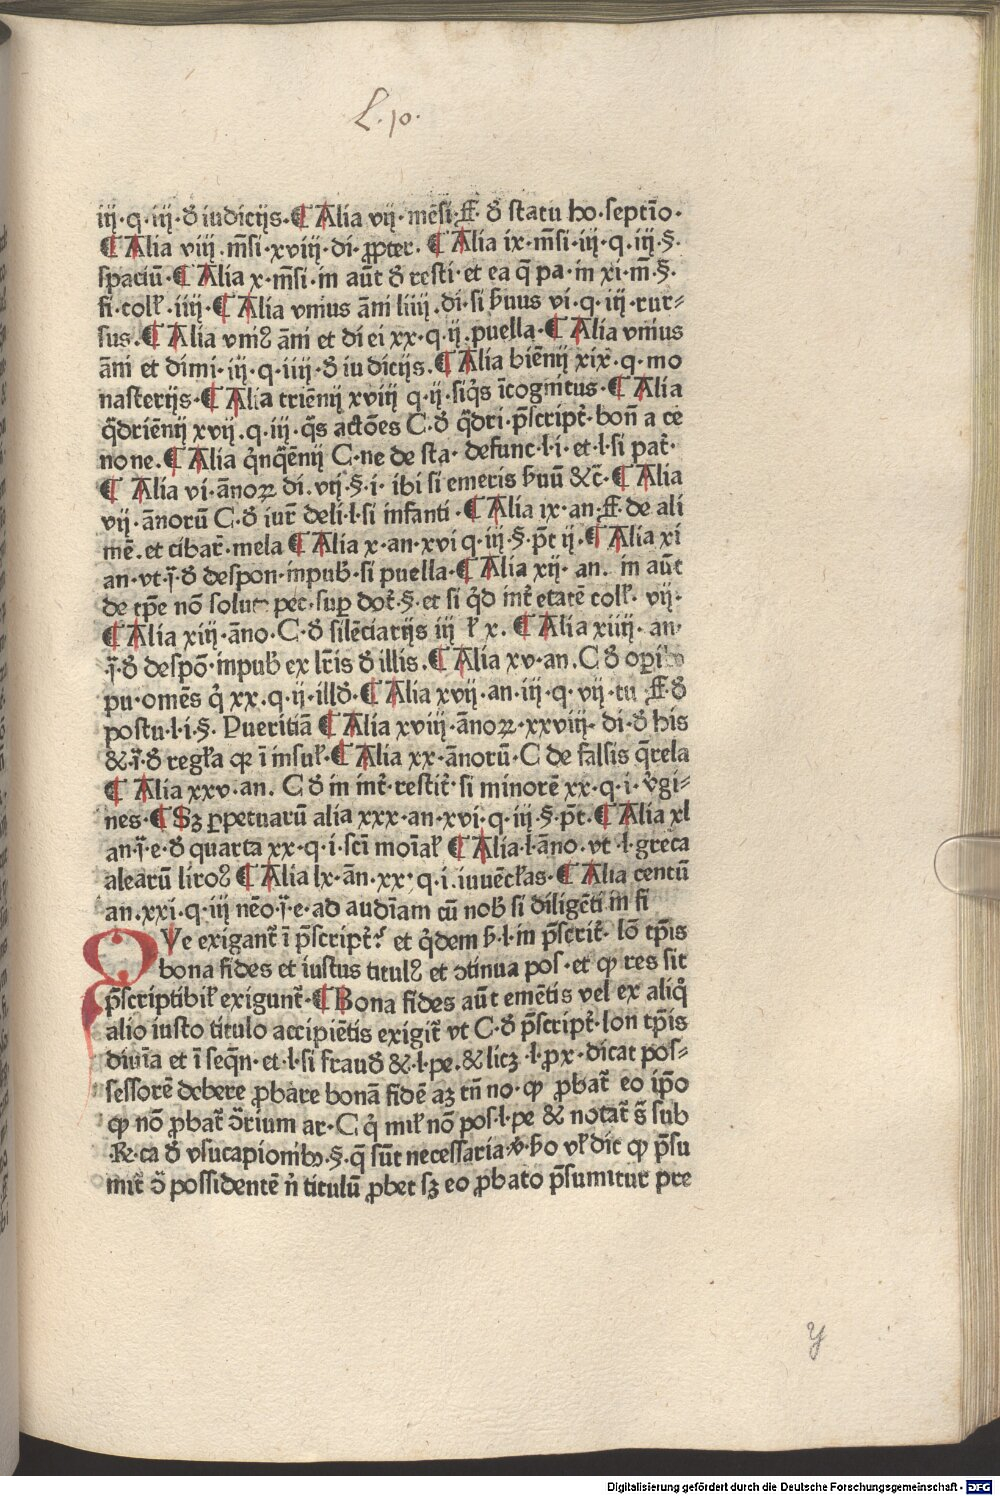 L.10.
iij·q·iij·ꝺ iudicijs·¶Alia vij·mēsi·ff·ꝺ statu ho·septīo·
¶Alia viij.m̄si·xviij·di·ꝓpter.¶Alia ix·m̄si·iij·q·iij·§·
spaciū·¶Alia x·m̄si·in aūt ꝺ resti·et ea q̄ pa·in xi·m̄·§·
fi·coll̵·iiij·¶Alia vnius āni liiij.di·si ẜuus vi·q·iij·rur⸗
sus.¶Alia vniꝰ āni et di ei xx·q·ij.puella·¶Alia vnius
āni et dimi·iij·q·iiij·ꝺ iudicijs.¶Alia biēnij xix·q·mo
nasterijs·¶Alia triēnij xviij q·ij·siq̇s īcognitus·¶Alia
q̈driēnij xvij.q·iij·q̄s actōes C·ꝺ q̈dri·p̄script᷑·bon̄ a ce
none.¶Alia q̇nq̈ēnij C·ne de sta·defunc·l·i·et·l·si pat᷑·
¶Alia vi·ānoꝝ di·vij·§·i·ibi si emeris ẜuū &c̄·¶Alia
vij·ānorū C·ꝺ iur᷑ deli·l·si infanti·¶Alia ix·an·ff·de ali
mē.et cibar᷑·mela ¶Alia x·an·xvi q·iij·§·p̄t ij·¶Alia xi
an·vt·j̄·ꝺ despon·inpub̵·si puella·¶Alia xij·an. in aūt
de tp̄e nō solut pec·suꝑ dot᷑·§·et si q̇d int᷑ etatē coll̵·vij·
¶Alia xiij·āno·C·ꝺ silēciarijs iij l̵ x.¶Alia xiiij·an·
j̄·ꝺ despō·inpub̵ ex lr̄is ꝺ illis.¶Alia xv·an.C ꝺ oꝑi
pu·omēs q̇ xx·q·ij·illꝺ·¶Alia xvij·an·iij·q·vij·tu ff·ꝺ
postu·l·i·§·Pueritiā ¶Alia xviij·ānoꝝ·xxviij·di·ꝺ his
&·j̄·ꝺ regl̵a ꝙ ī insul̵·¶Alia xx·ānorū·C de falsis q̄rela
¶Alia xxv·an. C ꝺ in int᷑·restit᷑·si minorē xx·q·i·v̇gi⸗
nes·¶Sꝫ ꝑpetuarū alia xxx·an·xvi·q·iij·§·p̄t·¶Alia xl
an·j̄·e·ꝺ quarta xx·q·i·sc̄i moīal̵ ¶Alia·l·āno·vt·l·greca
alearū liroꝰ ¶Alia lx·an·xx·q·i·iuvēcl̵as·¶Alia centū
an·xxi·q·iij nēo·j̄·e·ad audīam cū nob̵ si diligēti in fi
QVe exigant᷑ ī p̄script᷑·ˀ et q̇dem ẜ·l·in p̄scrit᷑·lō tp̄is
bona fides et iustus titulꝰ et ↄtinua pos·et ꝙ res sit
p̄scriptibil̵ exigunt᷑·¶Bona fides aūt emētis vel ex aliq̇
alio iusto titulo accipiētis exigit᷑ vt C·ꝺ p̄script᷑·lon tp̄is
diuīa et ī seq̄n·et·l·si frauꝺ &·l·pe.&licꝫ·l·ꝓx·dicat pos⸗
sessorē debere ꝓbare bonā fidē aꝫ tn̄ no·ꝙ ꝓbat᷑ eo ip̄o
ꝙ nō ꝓbat᷑ ↄ̄rium ar·C q̇ mil̵ nō pos·l·pe & notat᷑ s̄ sub
Re·ca ꝺ vsucapionibꝰ·§·q̄ sūt necessaria·v̇·ẜo vl̵ dic̄ ꝙ p̄su
mit᷑ ↄ̄ possidentē n̄ titulū ꝓbet sꝫ eo ꝓbato p̄sumitur pre
y
Digitalisierung gefördert durch die Deutsche Forschungsgemeinschaft · DFG